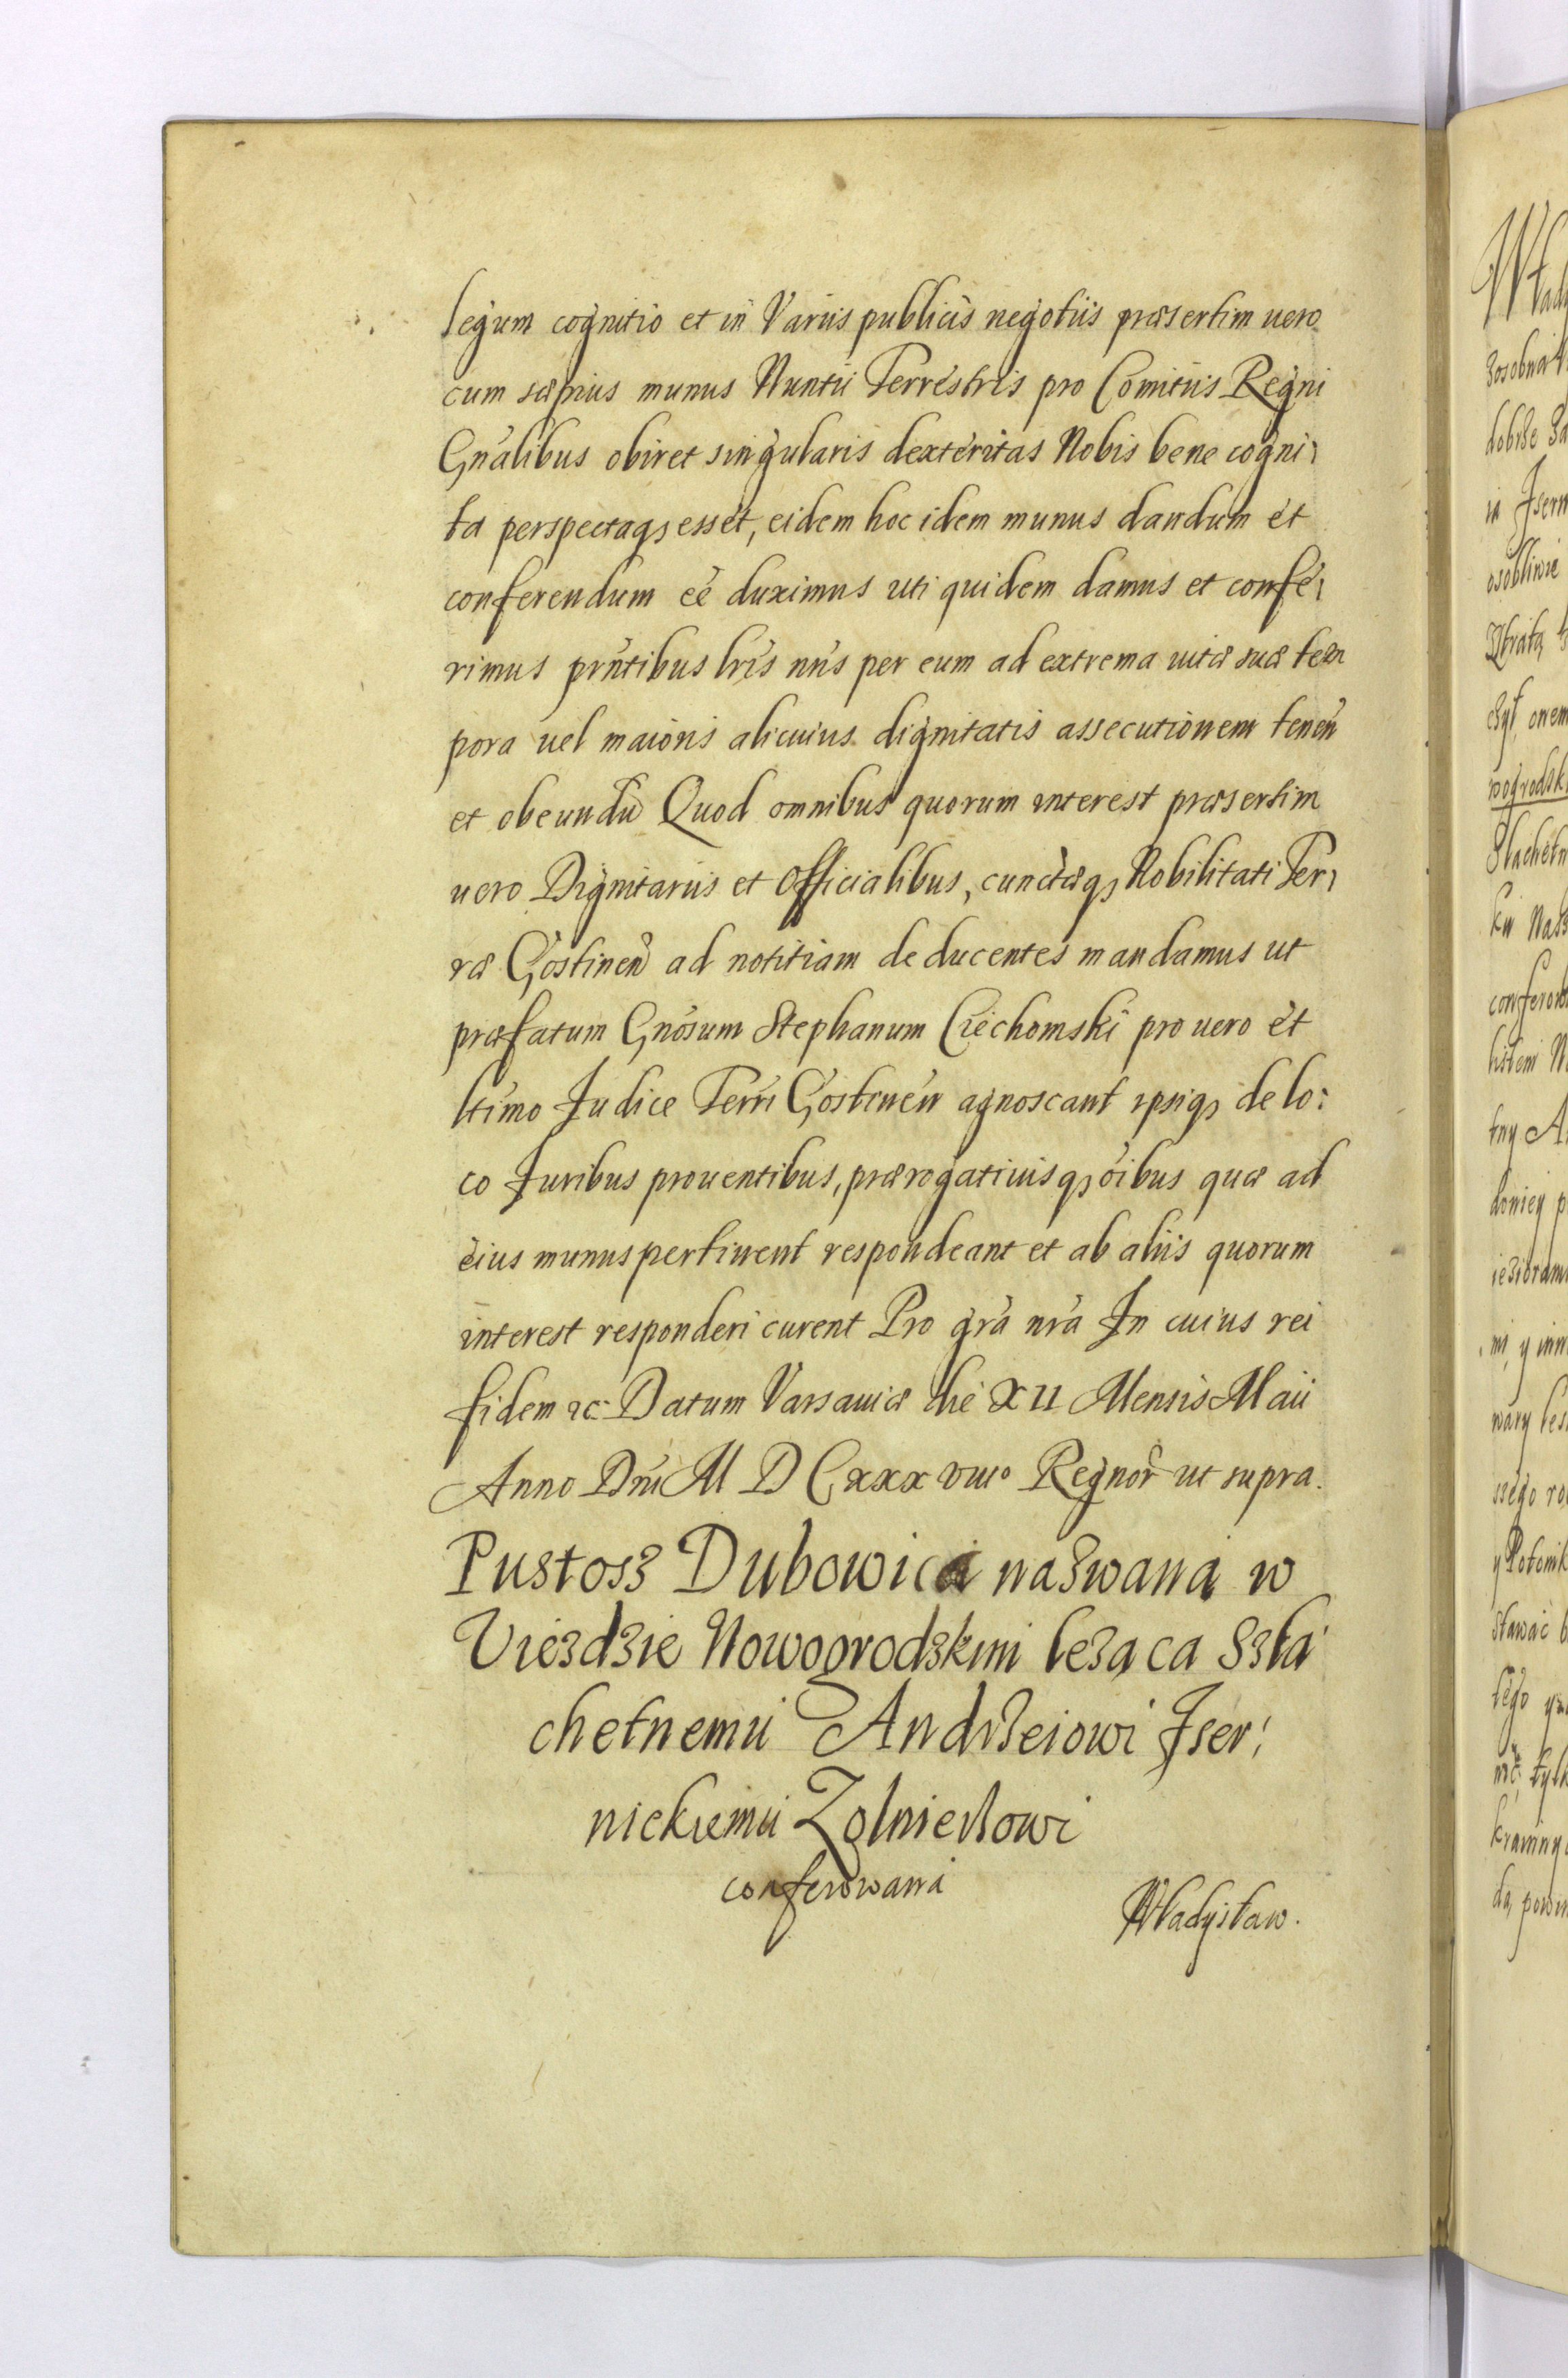 legum cognitio et in Variis publicis negotiis præsertim uero
cum sæpius munus Nuntii Terrestris pro Comitiis Regni
Gńalibus obiret singularis dexteritas Nobis bene cogni¬
ta perspectaqз esset, eidem hoc idem munus dandum et
conferendum eé duximus uti quidem damus et confe¬
rimus prńtibus lrís nrís per eum ad extrema uitæ suæ tem
pora uel maioris alicuius dignitatis assecutionem tenen̄
et obeundū Quod omnibus quorum interest præsertim
uero Dignitariis et Officialibus, cunctæqз Nobilitati Ter¬
ræ Gostinen̄ ad notitiam deducentes mandamus ut
præfatum Gnósum Stephanum Ciechomski pro uero et
ltímo Judice Terrí Gostinen̄ agnoscant ipsiqз de lo:
co Juribus prouentibus, prærogatiuisqз óibus quæ ad
eius munus pertinent respondeant et ab aliis quorum
interest responderi curent Pro grá nrá In cuius rei
fidem ꝛc: Datum Varsauiæ die XII Mensis Maii
Anno Dní M D Cxxx viiiº Regnor̄ ut supra.
Pustosz Dubowica nazwana w
Uiezdzie Nowogrodzkim lezaca Szla
chetnemu Andrzeiowi Jzer:
nickiemu Zolnierzowi
conferowana
Władysław.
Wlad
dobrze
osobliwie
onem